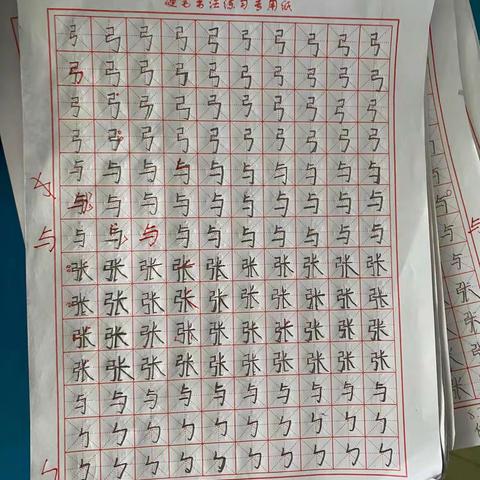 硬笔书法练习专用纸
弓弓弓弓弓弓弓弓弓弓
弓弓弓弓弓弓弓弓弓弓
弓弓弓弓弓弓弓弓弓弓
弓弓弓弓弓弓弓弓弓弓
与与与与与与与与与与
与与与与与与与与与与
与 与与与与与与与与与与
张张张张张张张张张张
张张张张张张张张张张
张张张张张张张张张张
张张张张张张张张张张
与与与与与与与与与与
ㄅㄅㄅㄅㄅㄅㄅㄅㄅㄅ
ㄅ ㄅㄅㄅㄅㄅㄅㄅㄅㄅㄅ